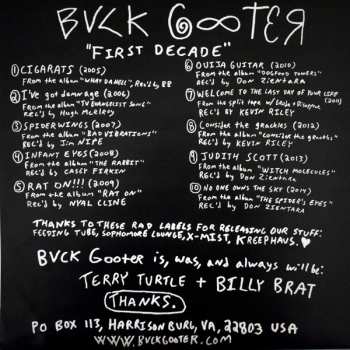 BVCK GOOTER
"FIRST DECADE"
① CIGARATS (2005)
From the album "WHAT DA HELL", Rec'd by BB
② I've got damage (2006)
From the album "TV EVANGELIST SONG"
Rec'd by Hugh McElroy
③ SPIDERWINGS (2007)
From the album "BAD VIBRATIONS"
Rec'd by Jim NIPE
④ INFANT EYES (2008)
From the album "THE RABBIT"
Rec'd by CASEY FIRKIN
⑤ RAT ON!!! (2009)
From the album "RAT ON"
Rec'd by NYAL CLINE
⑥ OUIJA GUITAR (2010)
From the album "DOGFOOD TOWERS"
REC'D by Don Zientara
⑦ WELCOME TO THE LAST DAY OF YOUR LIFE
From the split tape w/ (2011)
REC'd by KEVIN RILEY
⑧ Consider the grackles (2012)
From the album "Consider the grackles"
REC'd by Kevin RILEY
⑨ JUDITH SCOTT (2013)
From the album "WITCH MOLECULES"
REC'd by DON ZIENTARA
⑩ NO ONE OWNS THE SKY (2014)
From the album "THE SPIDER'S EYES"
REC'd by DON ZIENTARA
THANKS TO THESE RAD LABELS FOR RELEASING OUR STUFF:
FEEDING TUBE, SOPHOMORE LOUNGE, X-MIST, KREEPHAUS. ♥
BVCK GOOTER is, was, and always will be:
TERRY TURTLE + BILLY BRAT
THANKS.
PO BOX 113, HARRISONBURG, VA, 22803 USA
WWW.BVCKGOOTER.COM